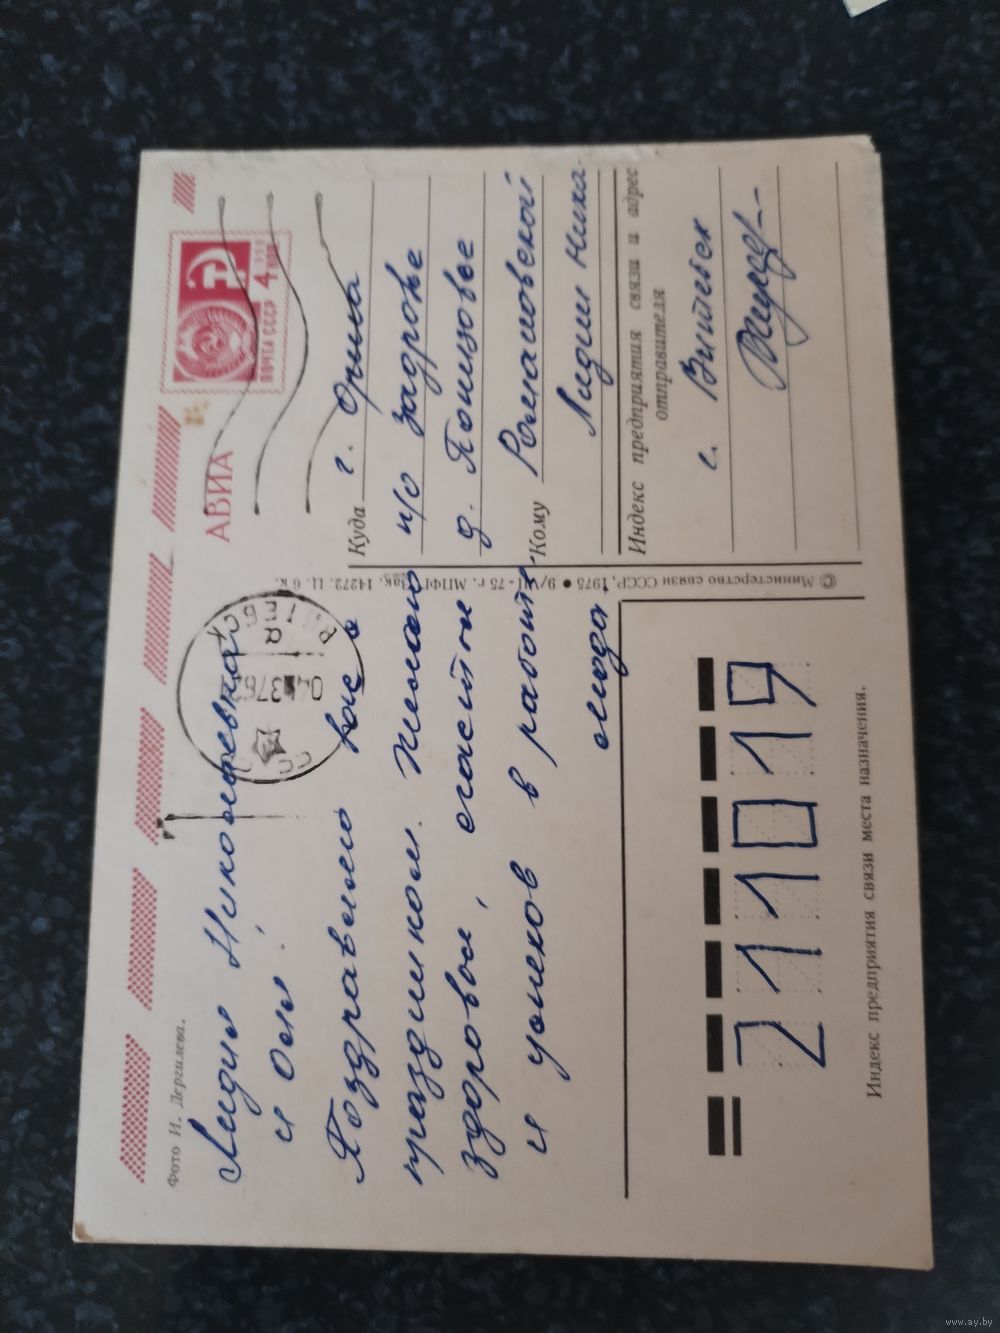 Фото И. Дергилева.
Лидия Николаевна
и Оля!
Поздравляю вас с
праздником. Желаю
здоровья, счастья
и успехов в работе,
АВИА
ПОЧТА СССР
4 КОП
Куда г. Орша
п/о Задровье
д. Понизовье
Кому Романовской
ЛидииНика-
Индекс предприятия связи и адрес
отправителя
г. Витебск
© Министерство связи СССР, 1975 • 9/VII-75 г. МПФГ Зак. 14272. Ц. 6 к.
ВИТЕБСК
211019
Индекс предприятия связи места назначения.
www.ay.by